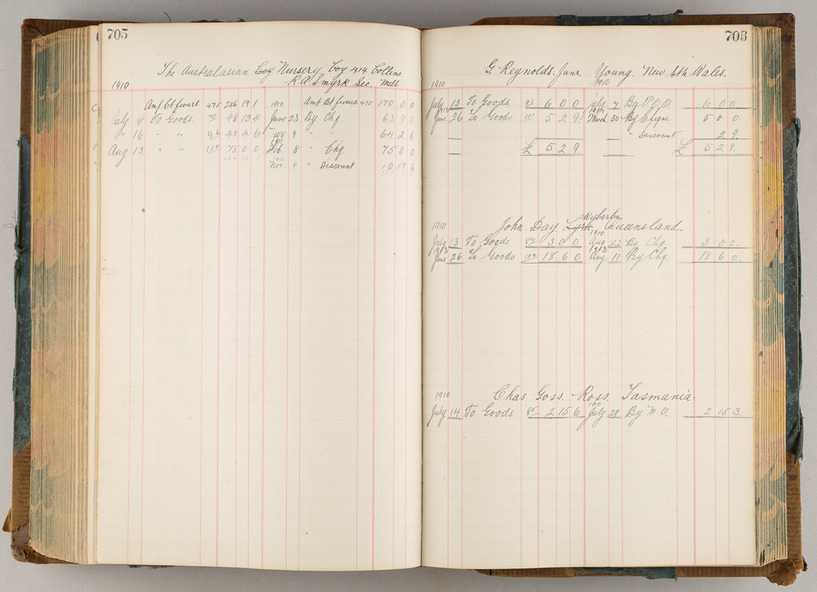 705
The Australasian Coy Nursery Coy 414 Collins
R. A. Smyrk Sec. Melb
1910
Amt Bt forwd 475 266 19 1 1910 Amt Bt forwd 475 170 0 0
July 9 To Goods 98 13 4 June 23 By Chq 63 9 0
" 16 " " 96 40 4 6 Nov 9 " " 64 2 6
Aug 13 " " 137 75 0 0 Feb 8 " Chq 75 0 0
Nov 9 " Discount 10 17 6
706
G. Reynolds. Junr Young. New Sth Wales.
1910 1910
July 13 To Goods 6 0 0 July 7 By P.O.O. 6 0 0
June 26 To Goods 5 2 9 March 30 By Cheque 5 0 0
" Discount 2 9
£ 5 2 9 £ 5 2 9
Wyberba
1910 John Day Lyra Queensland.
1910
July 13 To Goods 3 0 0 Aug 22 By Chq. 3 0 0
1913 1913
June 26 To Goods 18 6 0 Aug 11 By Chq. 18 6 0
1910 Chas Goss. - Ross. Tasmania.
July 14 To Goods 2 15 6 July 28 By M.O. 2 15 3